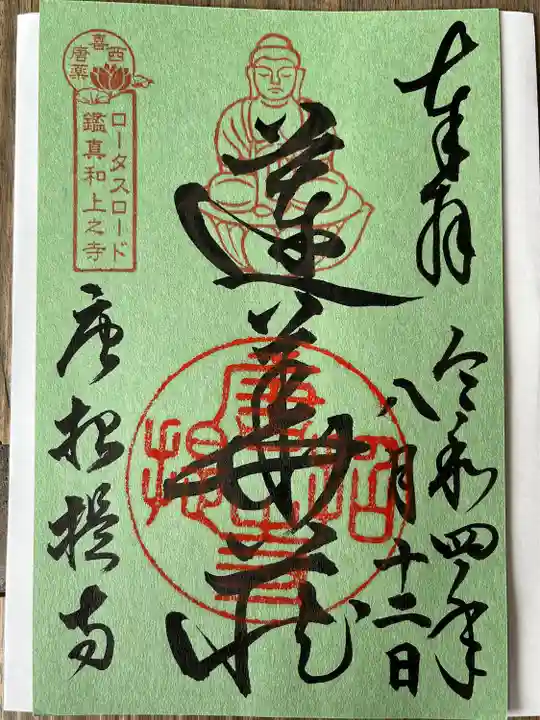 奉拝
令和四年
八月十二日
蓮華蔵
唐招提寺
唐招提寺
喜
唐 西
薬
ロータスロード
鑑真和上之寺